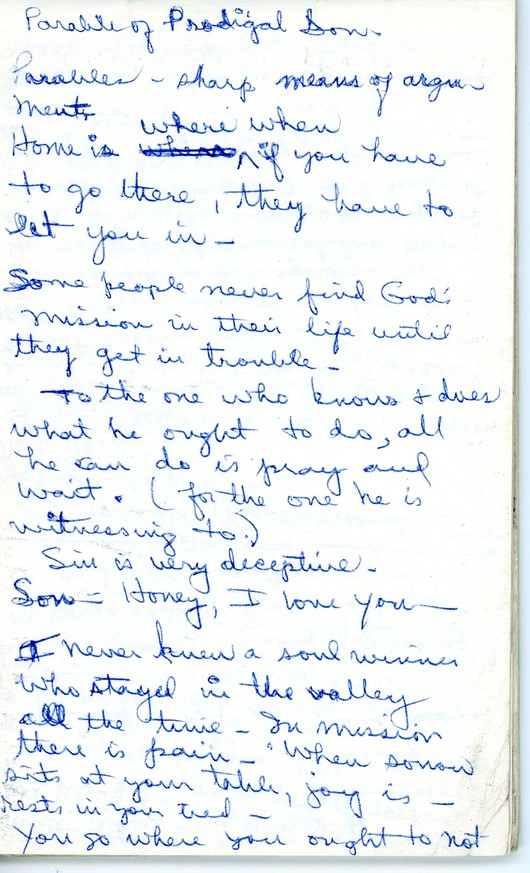 Parable of Prodigal Son.
Parables - sharp means of argu
ments
where when
Home is where if you have
to go there, they have to
let you in -
Some people never find God's
mission in their life until
they get in trouble -
To the one who knows & does
what he ought to do, all
he can do is pray and
wait. (for the one he is
witnessing to.)
Sin is very deceptive.
Son - Honey, I love you -
I never knew a soul winner
who stayed in the valley
all the time - In mission
there is pain - "When sorrow
sits at your table, joy is -
rests in your bed -
You go where you ought to not